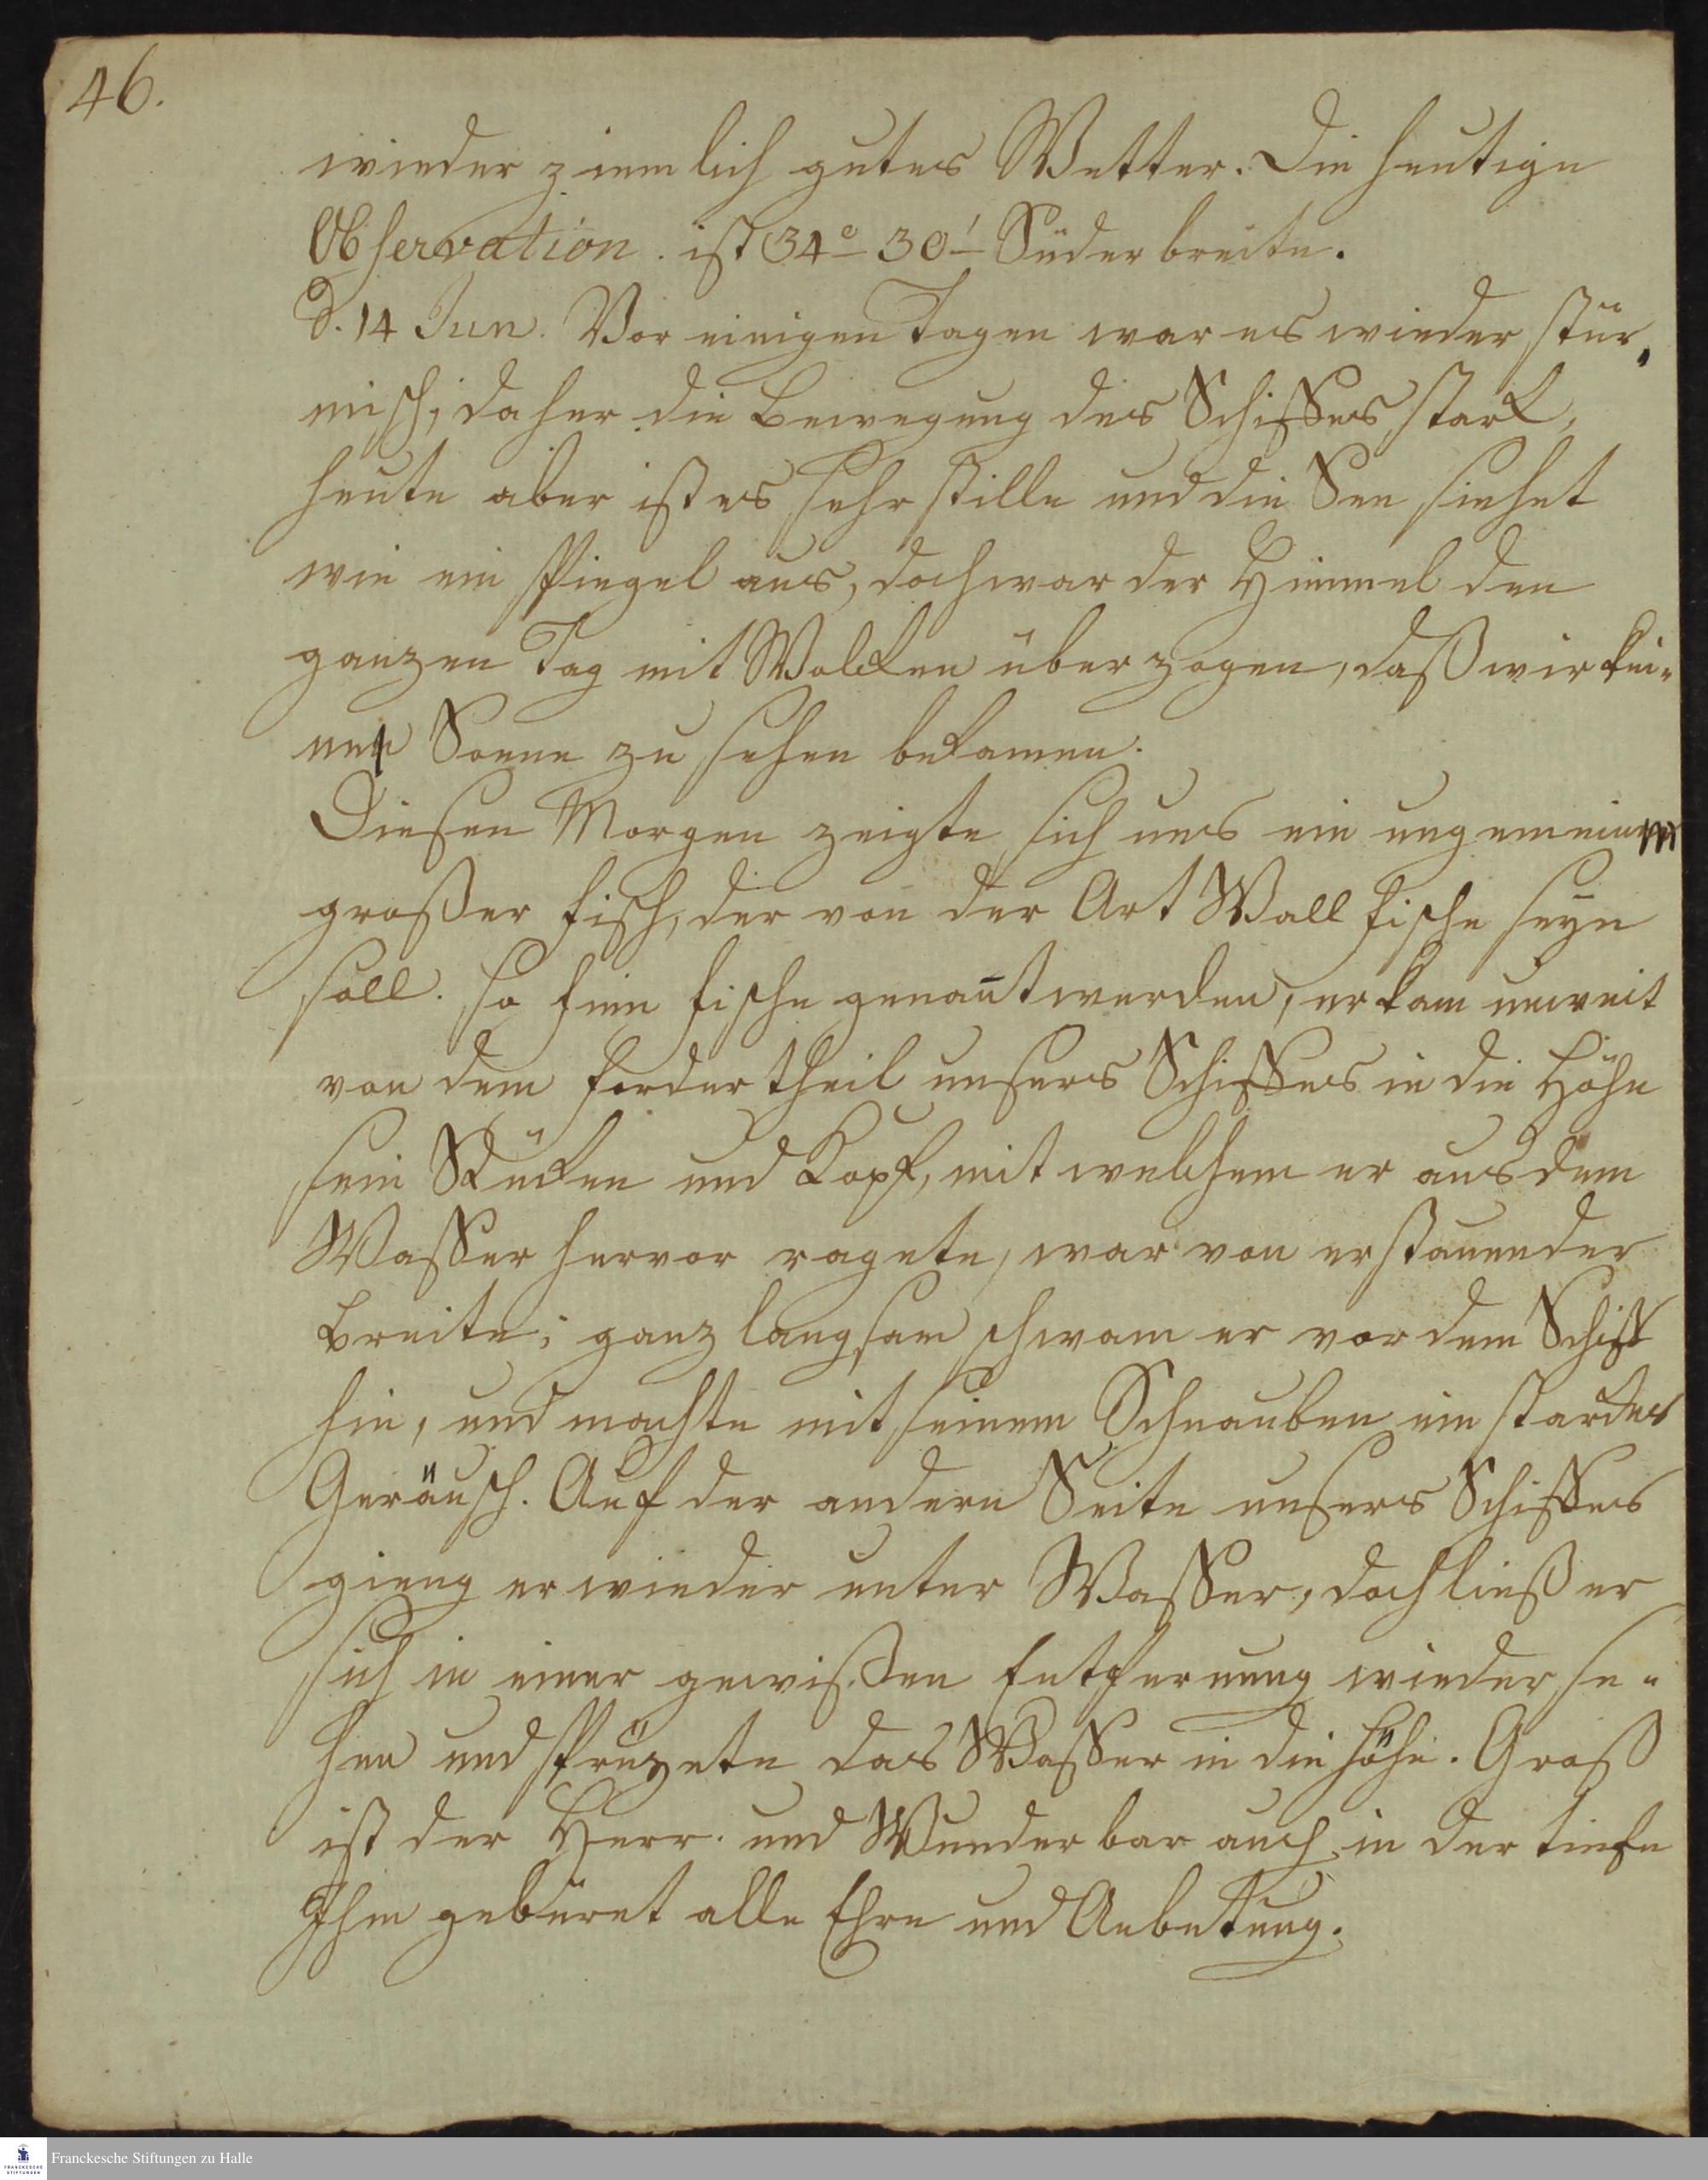 46.
wieder ziemlich gutes Wetter. Die heutige
Observation. ist 34° 30' Süder breite.
d. 14 Jun. Vor einigen Tagen war es wieder stür„
misch, daher die Bewegung des Schiffes stark,
heute aber ist es sehr stille und die See siehet
wie ein Spiegel aus, doch war der Himmel den
ganzen Tag mit Wolken überzogen, daß wir kei„
ne Sonne zu sehen bekamen.
Diesen Morgen zeigte sich uns ein ungemein
großer Fisch, der von der Art Wallfische seyn
soll. so Finn fische genañt werden, er kam unweit
von dem fordertheil unsers Schiffes in die Höhe
sein Rücken und Kopf, mit welchem er aus dem
Wasser hervor ragete, war von erstauender
Breite; ganz langsam schwam er vor dem Schiff
hin, und machte mit seinem Schnauben ein starkes
Geräusch. Auf der andern Seite unsers Schiffes
gieng er wieder unter Wasser, doch ließ er
sich in einer gewißen Entfernung wieder se„
hen und sprüzete das Wasser in die höhe. Groß
ist der Herr. und Wunderbar auch in der tiefe
Ihm gebüret alle Ehre und Anbetung.
Franckesche Stiftungen zu Halle
FRANCKESCHE
STIFTUNGEN